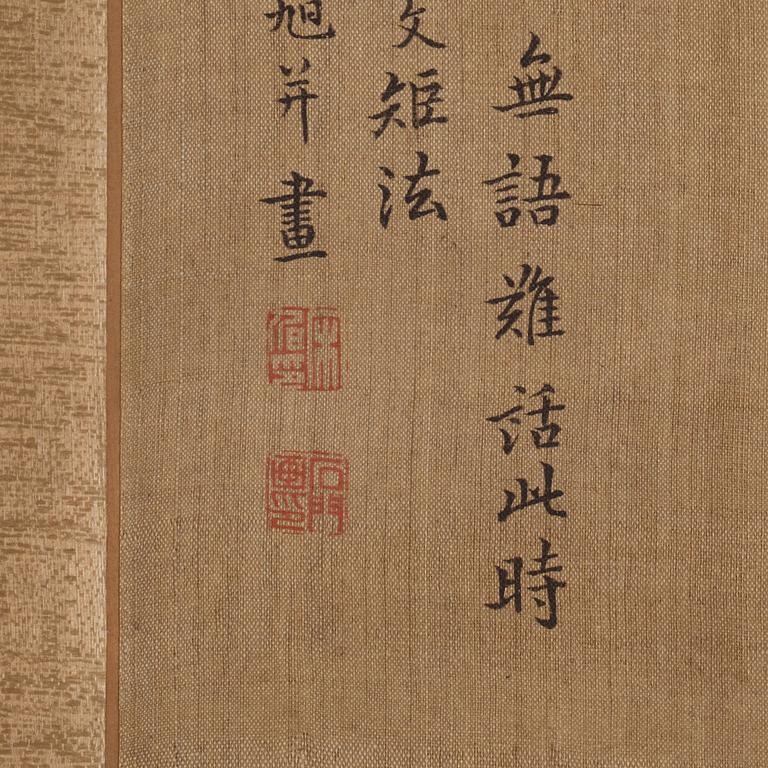 無語難話此時
文矩法
旭并畫
石門